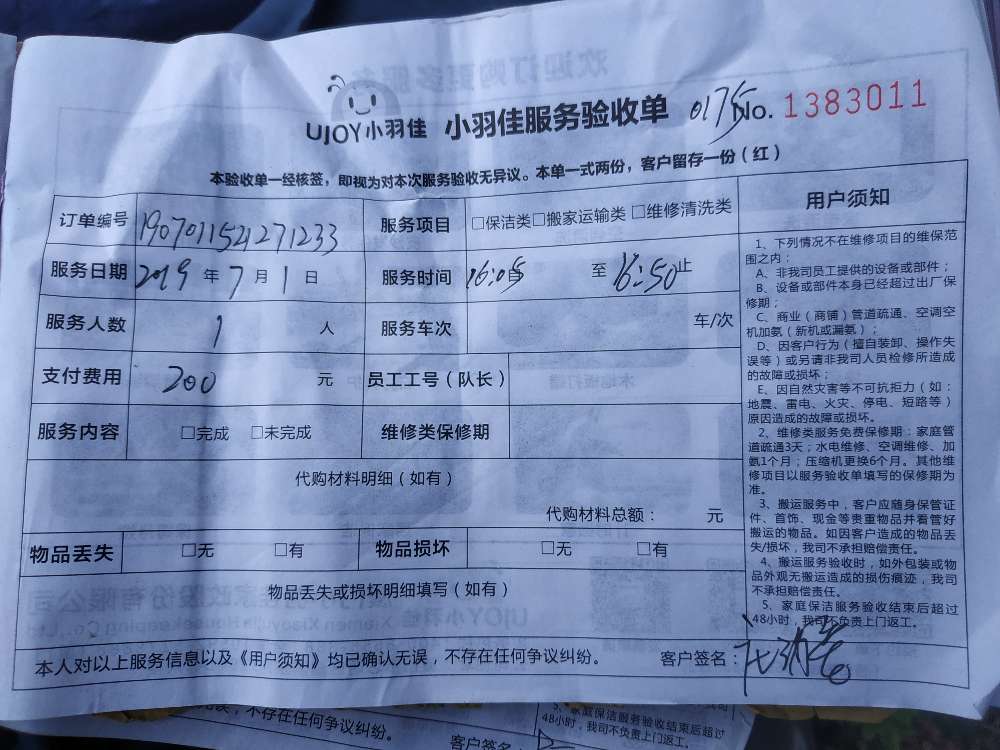 UJOY小羽佳 小羽佳服务验收单 0175 No. 1383011
本验收单一经核签，即视为对本次服务验收无异议。本单一式两份，客户留存一份（红）
订单编号 1907011521271233 服务项目 □保洁类□搬家运输类□维修清洗类
服务日期 2019 年 7 月 1 日 服务时间 16:05 至 16:50 止
服务人数 1 人 服务车次 车/次
支付费用 200 元 员工工号（队长）
服务内容 □完成 □未完成 维修类保修期
代购材料明细（如有）
代购材料总额： 元
物品丢失 □无 □有 物品损坏 □无 □有
物品丢失或损坏明细填写（如有）
本人对以上服务信息以及《用户须知》均已确认无误，不存在任何争议纠纷。 客户签名：
用户须知
1、下列情况不在维修项目的维保范
围之内：
A、非我司员工提供的设备或部件；
B、设备或部件本身已经超过出厂保
修期；
C、商业（商铺）管道疏通、空调空
机加氨（新机或漏氨）；
D、因客户行为（擅自装卸、操作失
误等）或另请非我司人员检修所造成
的故障或损坏；
E、因自然灾害等不可抗拒力（如：
地震、雷电、火灾、停电、短路等）
原因造成的故障或损坏。
2、维修类服务免费保修期：家庭管
道疏通3天；水电维修、空调维修、加
氨1个月；压缩机更换6个月。其他维
修项目以服务验收单填写的保修期为
准。
3、搬运服务中，客户应随身保管证
件、首饰、现金等贵重物品并看管好
搬运的物品。如因客户造成的物品丢
失/损坏，我司不承担赔偿责任。
4、搬运服务验收时，如外包装或物
品外观无搬运造成的损伤痕迹，我司
不承担赔偿责任。
5、家庭保洁服务验收结束后超过
48小时，我司不负责上门返工。
不存在任何争议纠纷。
客户签名：
5、家庭保洁服务验收结束后超过
48小时，我司不负责上门返工。